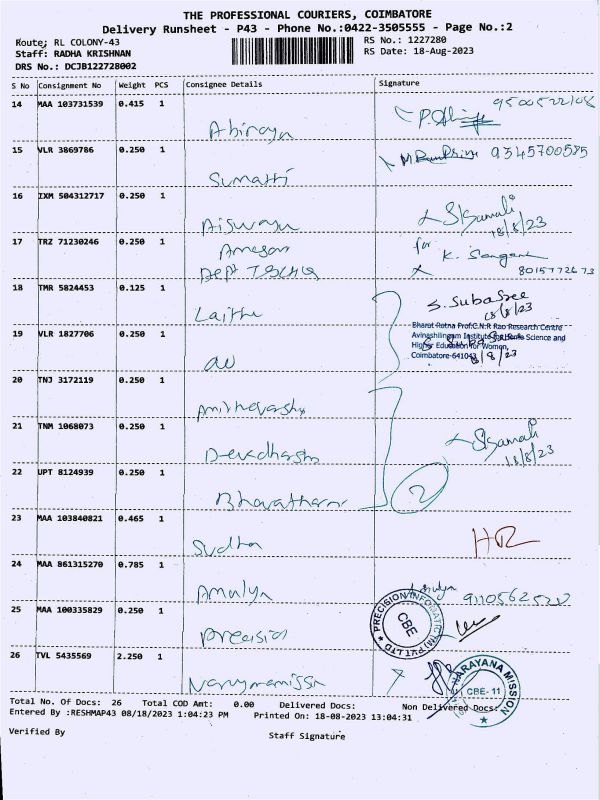 THE PROFESSIONAL COURIERS, COIMBATORE
Delivery Runsheet - P43 - Phone No.:0422-3505555 - Page No.:2
Route: RL COLONY-43 RS No.: 1227280
Staff: RADHA KRISHNAN RS Date: 18-Aug-2023
DRS No.: DCJB122728002
S No Consignment No Weight PCS Consignee Details Signature
14 MAA 103731539 0.415 1
Abiraya
15 VLR 3869786 0.250 1 9345700585
Sumathi
16 IXM 504312717 0.250 1
Aiswarya 18/8/23
17 TRZ 71230246 0.250 1 for K.
Dept
18 TMR 5824453 0.125 1 S. Subasree
18/8/23
Bharat Ratna Prof.C.N.R Rao Research Centre
19 VLR 1827706 0.250 1 Avinashilingam Institute for Home Science and
Higher Education for Women,
Coimbatore-641043 18/8/23
20 TNJ 3172119 0.250 1
21 TNM 1068073 0.250 1
Devadharshi 18/8/23
22 UPT 8124939 0.250 1
2
23 MAA 103840821 0.465 1
Sudha
24 MAA 861315270 0.785 1
Amulya
25 MAA 100335829 0.250 1 PRECISION INFOMATIC (M) PVT LTD CBE
Precision
26 TVL 5435569 2.250 1 NARAYANA MISSION CBE-11
Total No. Of Docs: 26 Total COD Amt: 0.00 Delivered Docs: Non Delivered Docs:
Entered By :RESHMAP43 08/18/2023 1:04:23 PM Printed On: 18-08-2023 13:04:31
Verified By Staff Signature